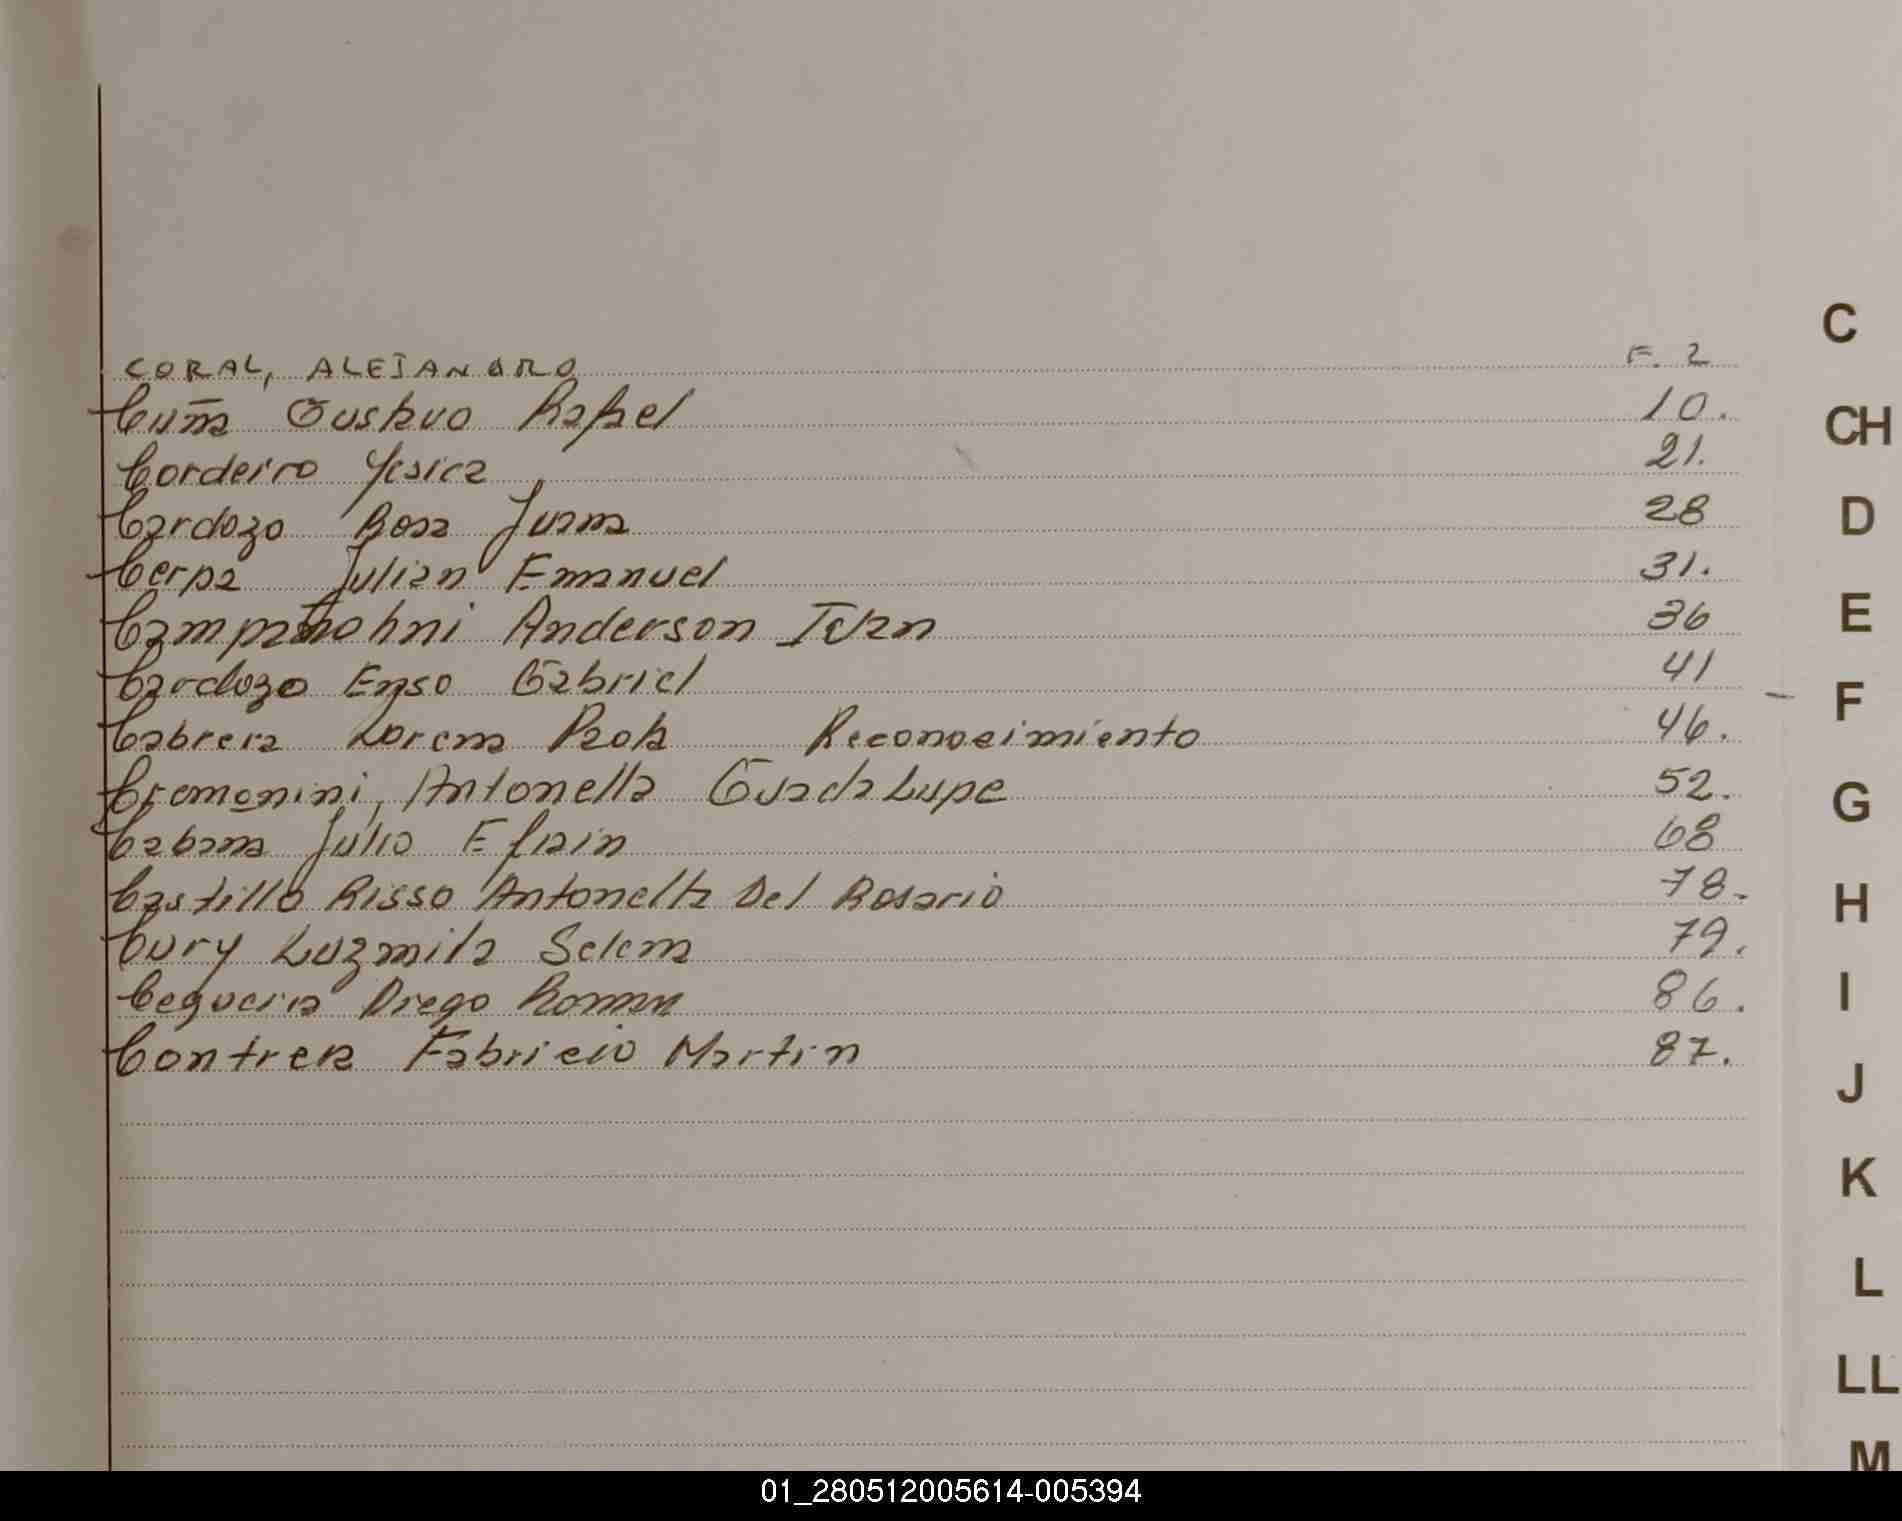 CORAL, ALEJANDRO F. 2
Cuña Gustavo Rafael 10.
Cordeiro Yesica 21.
Cardozo Rosa Juana 28
Cerpa Julian Emanuel 31.
Anderson Ivan 36
Cardozo Enso Gabriel 41
Cabrera Lorena Paola Reconocimiento 46.
Cremonini, Antonella Guadalupe 52.
Cabana Julio Efrain 68
Castillo Risso Antonella Del Rosario 78.
Cury Luzmila Selema 79.
Cegueria Diego Roman 86.
Contrera Fabricio Martin 87.
C
CH
D
E
F
G
H
I
J
K
L
LL
M
01_280512005614-005394